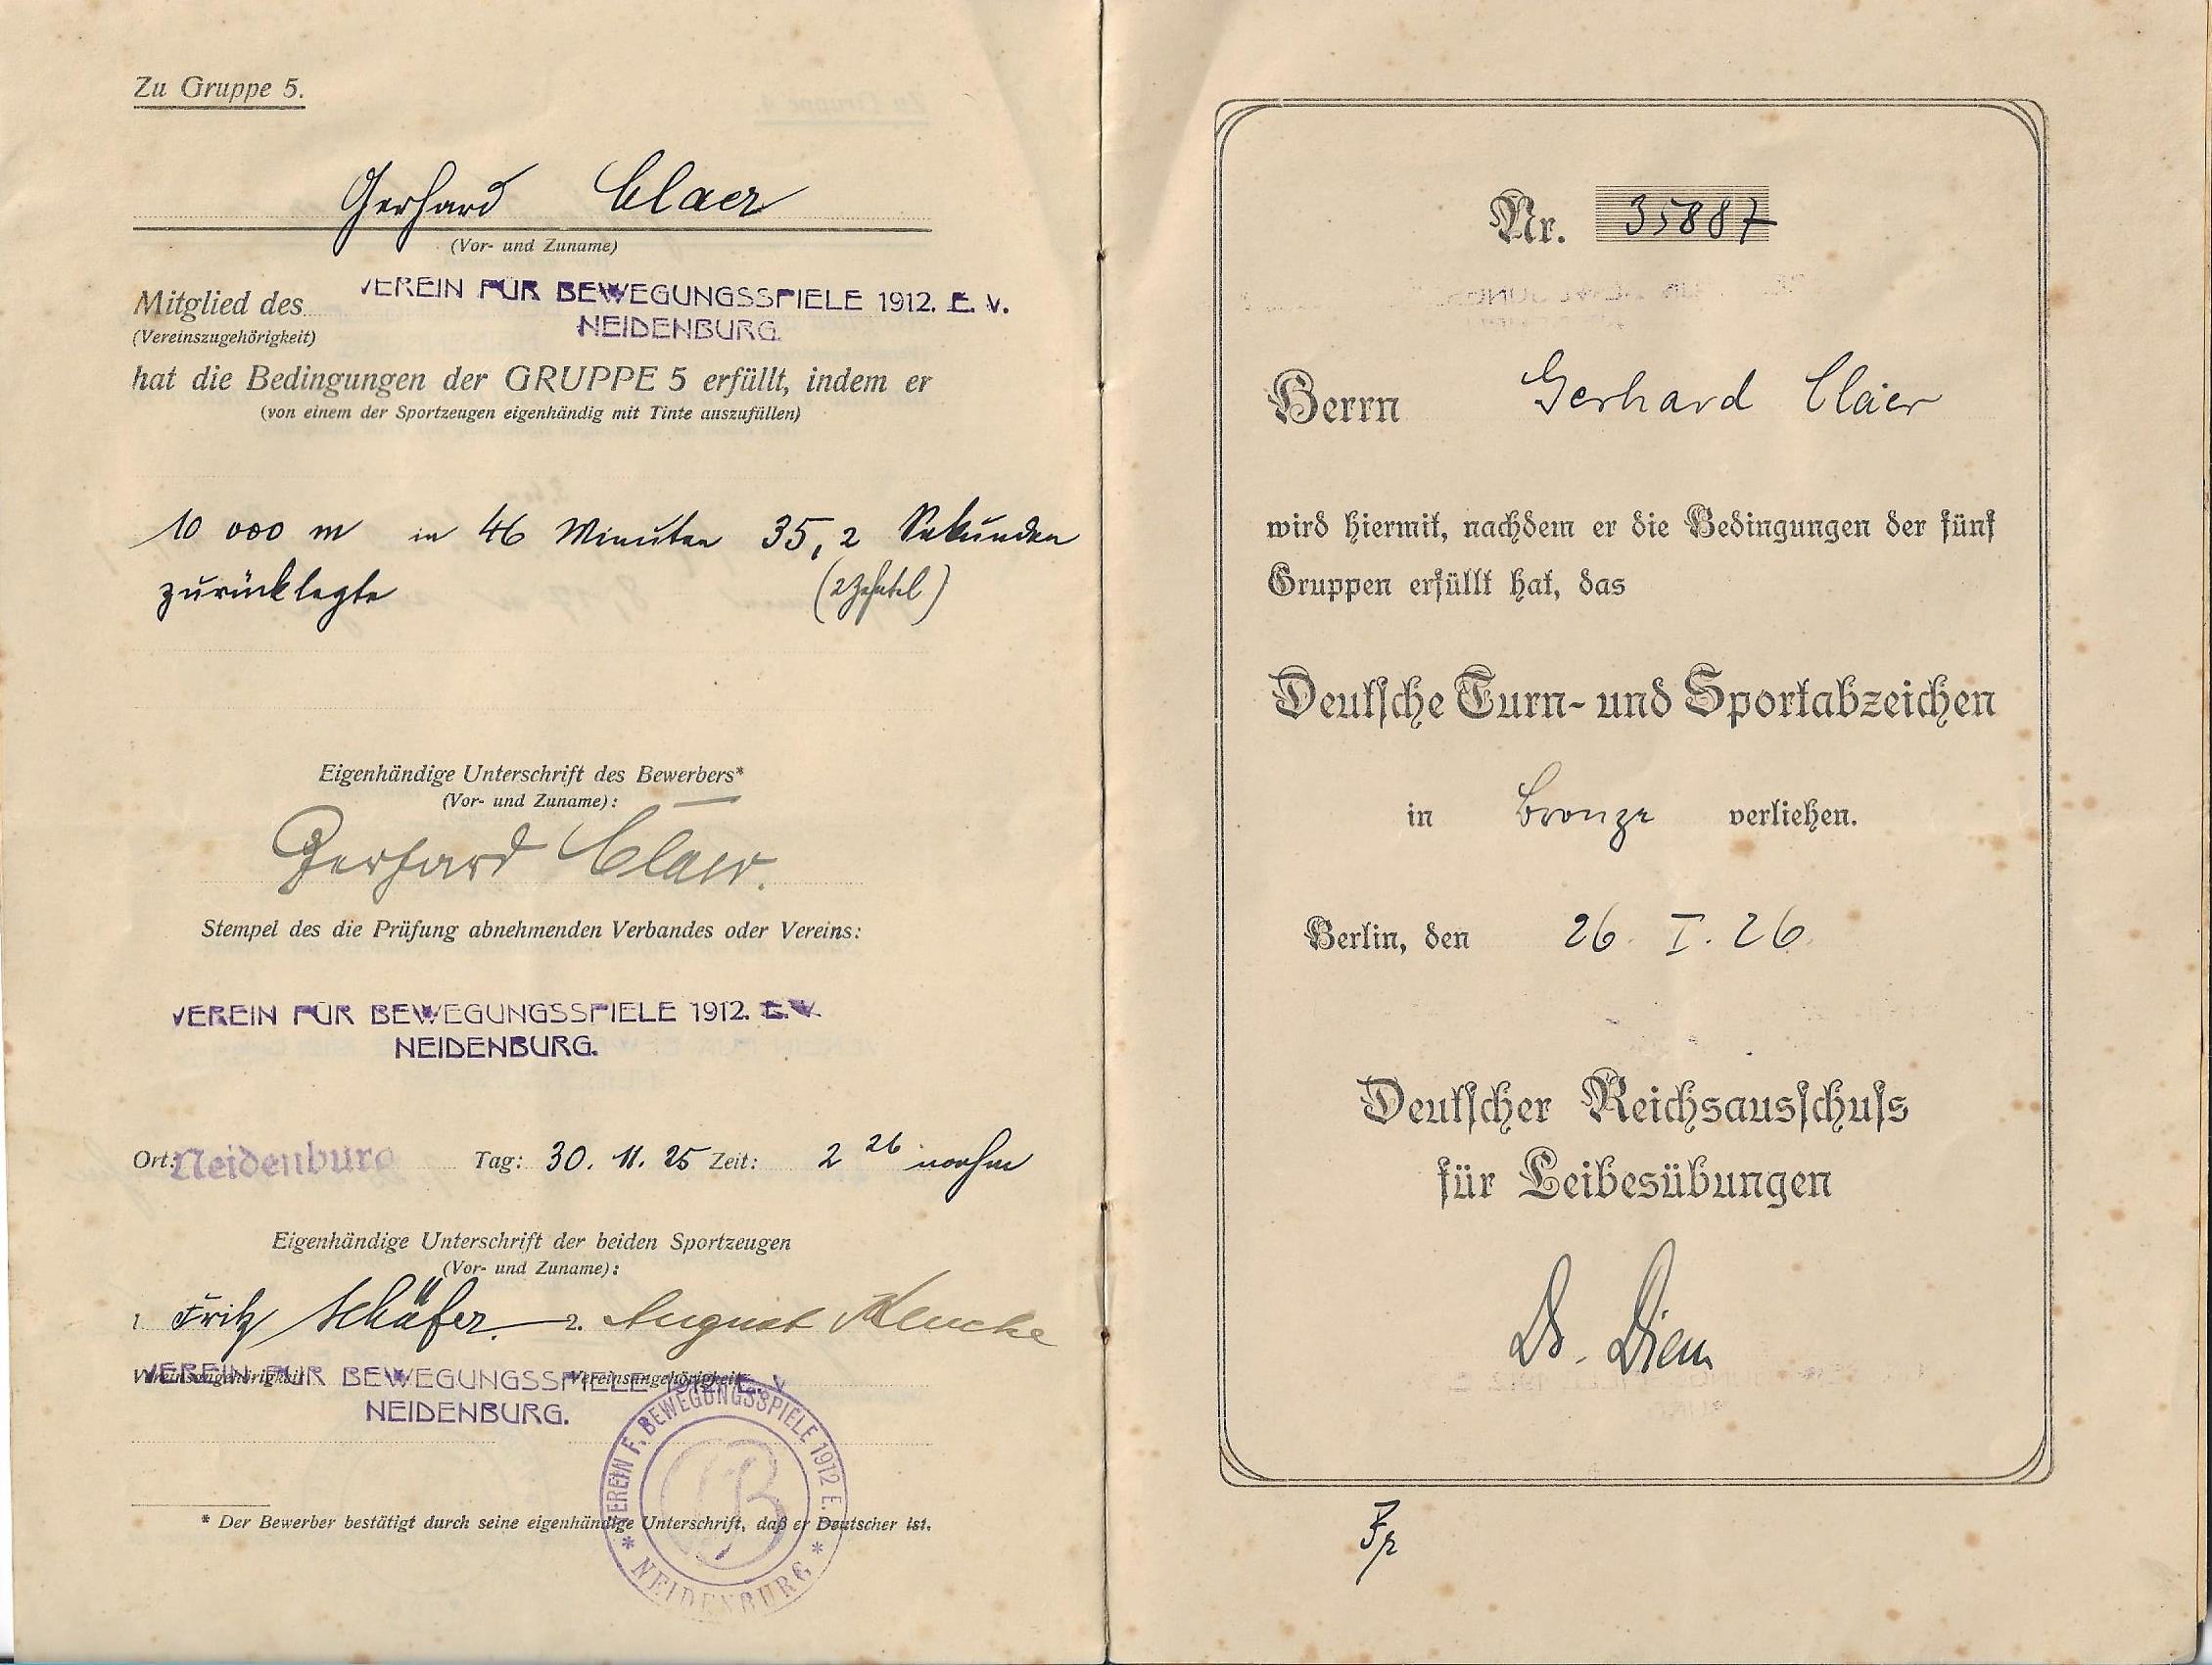 Zu Gruppe 5.
Gerhard Claer
(Vor- und Zuname)
Mitglied des VEREIN FÜR BEWEGUNGSSPIELE 1912. E. V.
NEIDENBURG.
(Vereinszugehörigkeit)
hat die Bedingungen der GRUPPE 5 erfüllt, indem er
(von einem der Sportzeugen eigenhändig mit Tinte auszufüllen)
10 000 m in 46 Minuten 35,2 Sekunden
zurücklegte (2 Zehntel)
Eigenhändige Unterschrift des Bewerbers*
(Vor- und Zuname):
Gerhard Claer.
Stempel des die Prüfung abnehmenden Verbandes oder Vereins:
VEREIN FÜR BEWEGUNGSSPIELE 1912. E. V.
NEIDENBURG.
Ort: Neidenburg Tag: 30. 11. 25 Zeit: 2 26 nachm
Eigenhändige Unterschrift der beiden Sportzeugen
(Vor- und Zuname):
1. Fritz Schäfer. 2. August
Vereinsangehörigkeit Vereinsangehörigkeit
VEREIN FÜR BEWEGUNGSSPIELE 1912. E. V
NEIDENBURG.
VEREIN F. BEWEGUNGSSPIELE 1912 E. V.
* NEIDENBURG *
* Der Bewerber bestätigt durch seine eigenhändige Unterschrift, daß er Deutscher ist.
Nr. 35887
Herrn Gerhard Claer
wird hiermit, nachdem er die Bedingungen der fünf
Gruppen erfüllt hat, das
Deutsche Turn- und Sportabzeichen
in Bronze verliehen.
Berlin, den 26. I. 26.
Deutscher Reichsausschuss
für Leibesübungen
Dr. Diem